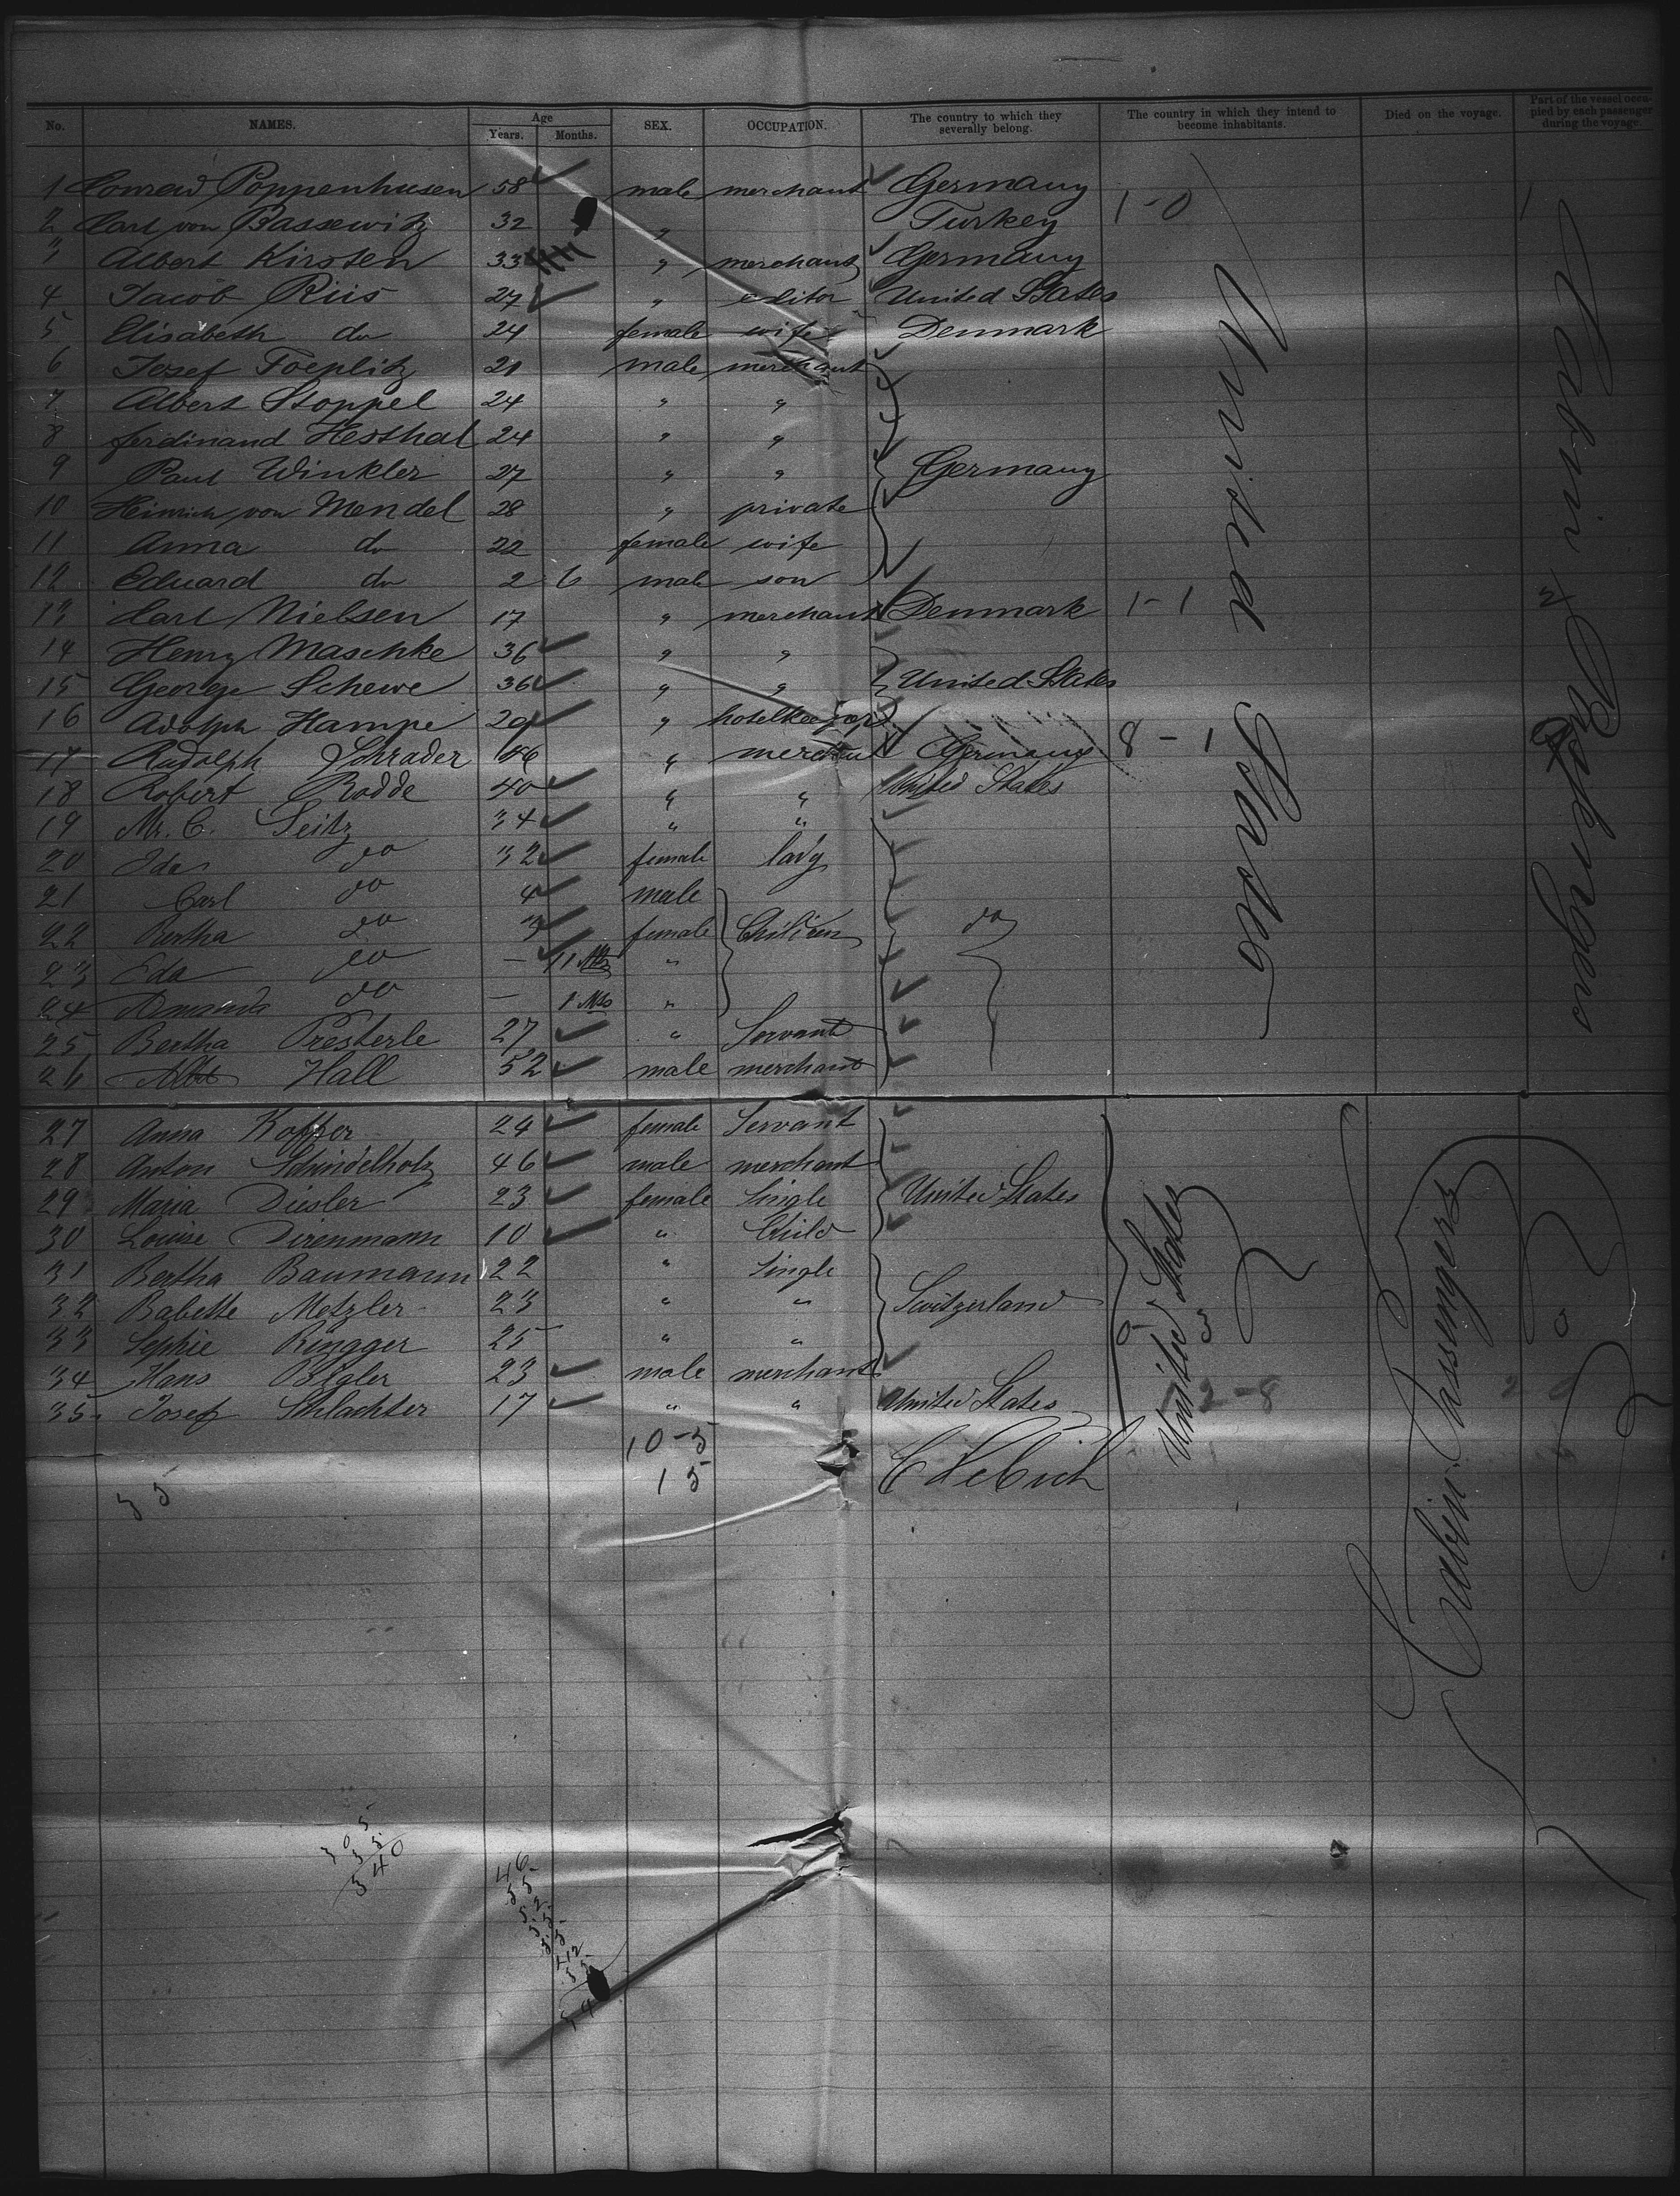 No. NAMES. Age Years. Months. SEX. OCCUPATION. The country to which they severally belong. The country in which they intend to become inhabitants. Died on the voyage. Part of the vessel occupied by each passenger during the voyage.
1 Conrad Poppenhusen 58 male merchant Germany
2 Carl von Bassewitz 32 " Turkey 1-0
3 Albert Kirsten 33 " merchant Germany
4 Jacob Riis 27 " editor United States
5 Elisabeth do 24 female wife Denmark
6 Josef Toeplitz 21 male merchant
7 Albert Stoppel 24 " "
8 Ferdinand Hesthal 24 " "
9 Paul Winkler 27 " " Germany
10 Heinrich von Mendel 28 " private
11 Anna do 22 female wife
12 Eduard do 2 6 male son
13 Carl Nielsen 17 " merchant Denmark 1-1
14 Henry Maschke 36 " "
15 George Schewe 36 " " United States
16 Adolph Hampe 29 " hotelkeeper
17 Rudolph Schrader 46 " merchant Germany 8-1
18 Robert Rodde 40 " " United States
19 Mr. C. Seitz 34 " "
20 Ida do 32 female lady
21 Carl do 4 male
22 Bertha do 3 female Children do
23 Eda do — 11 Mos "
24 Amanda do — 1 Mos "
25 Bertha Presterle 27 " Servant
26 Hall 52 male merchant
United States
Cabin Passengers
27 Anna Koffer 24 female Servant
28 Anton Schindelholz 46 male merchant
29 Maria Diesler 23 female Single United States
30 Louise Direnmann 10 " Child
31 Bertha Baumann 22 " Single
32 Babette Metzler 23 " " Switzerland
33 Sophie Ringger 25 " "
34 Hans Bigler 23 male merchant
35 Josef Schlachter 17 " " United States 2-8
United States
Cabin Passengers
10-5
15
35
305
35
340